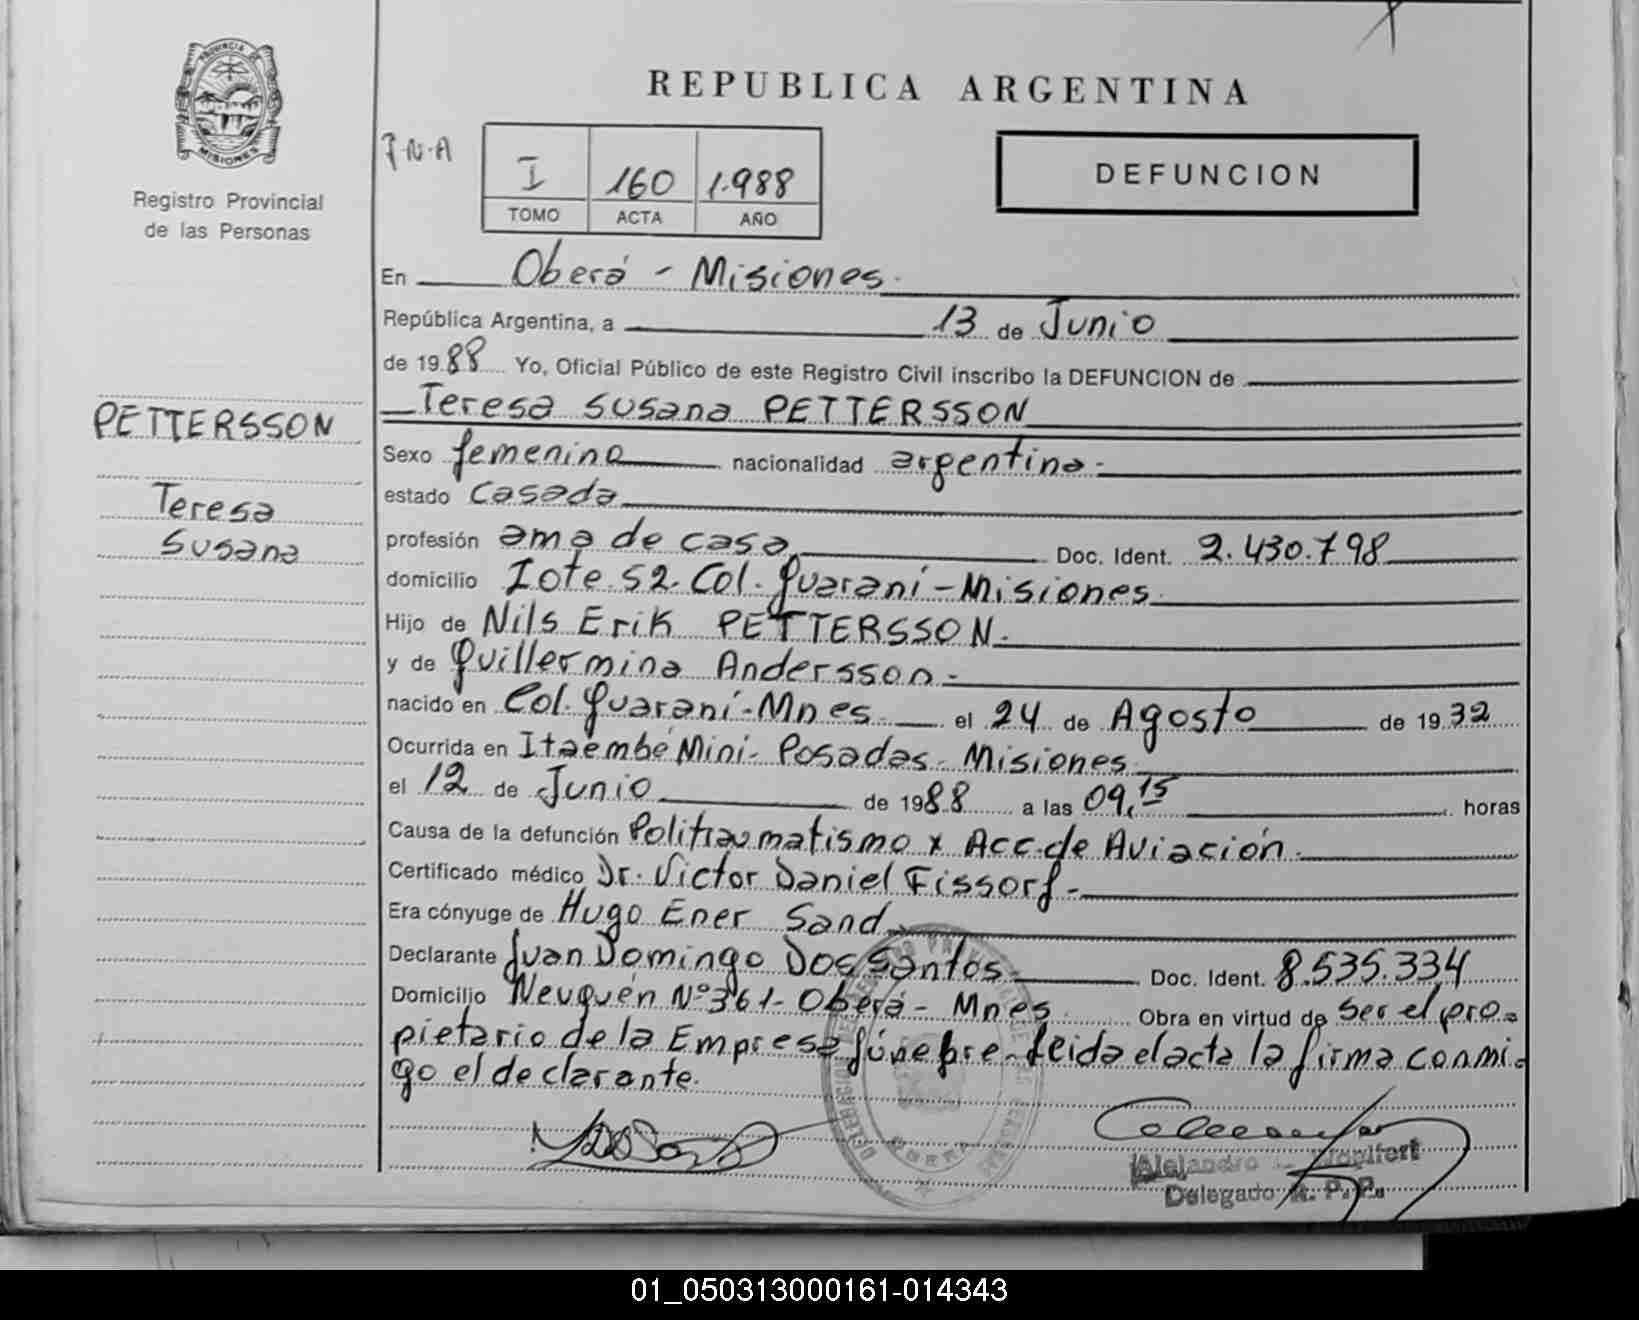 REPUBLICA ARGENTINA
PROVINCIA DE
MISIONES
Registro Provincial
de las Personas
I 160 1.988
TOMO ACTA AÑO
DEFUNCION
En Oberá - Misiones.
República Argentina, a 13 de Junio
de 1988 Yo, Oficial Público de este Registro Civil inscribo la DEFUNCION de
Teresa Susana PETTERSSON
PETTERSSON
Teresa
Susana
Sexo femenino nacionalidad argentina.
estado Casada
profesión ama de casa Doc. Ident. 2.430.798
domicilio Lote 52. Col. Guaraní - Misiones.
Hijo de Nils Erik PETTERSSON.
y de Guillermina Andersson.
nacido en Col. Guaraní - Mnes. el 24 de Agosto de 1932
Ocurrida en Itaembé Mini - Posadas - Misiones.
el 12 de Junio de 1988 a las 09,15 horas
Causa de la defunción Politraumatismo x Acc. de Aviación.
Certificado médico Dr. Victor Daniel Fissorf.
Era cónyuge de Hugo Ener Sand
Declarante Juan Domingo Dos Santos Doc. Ident. 8.535.334
Domicilio Neuquén Nº 361 - Oberá - Mnes. Obra en virtud de ser el pro-
pietario de la Empresa fúnebre - leida el acta la firma conmi-
go el declarante.
Alejandro
Delegado R. P. P.
01_050313000161-014343